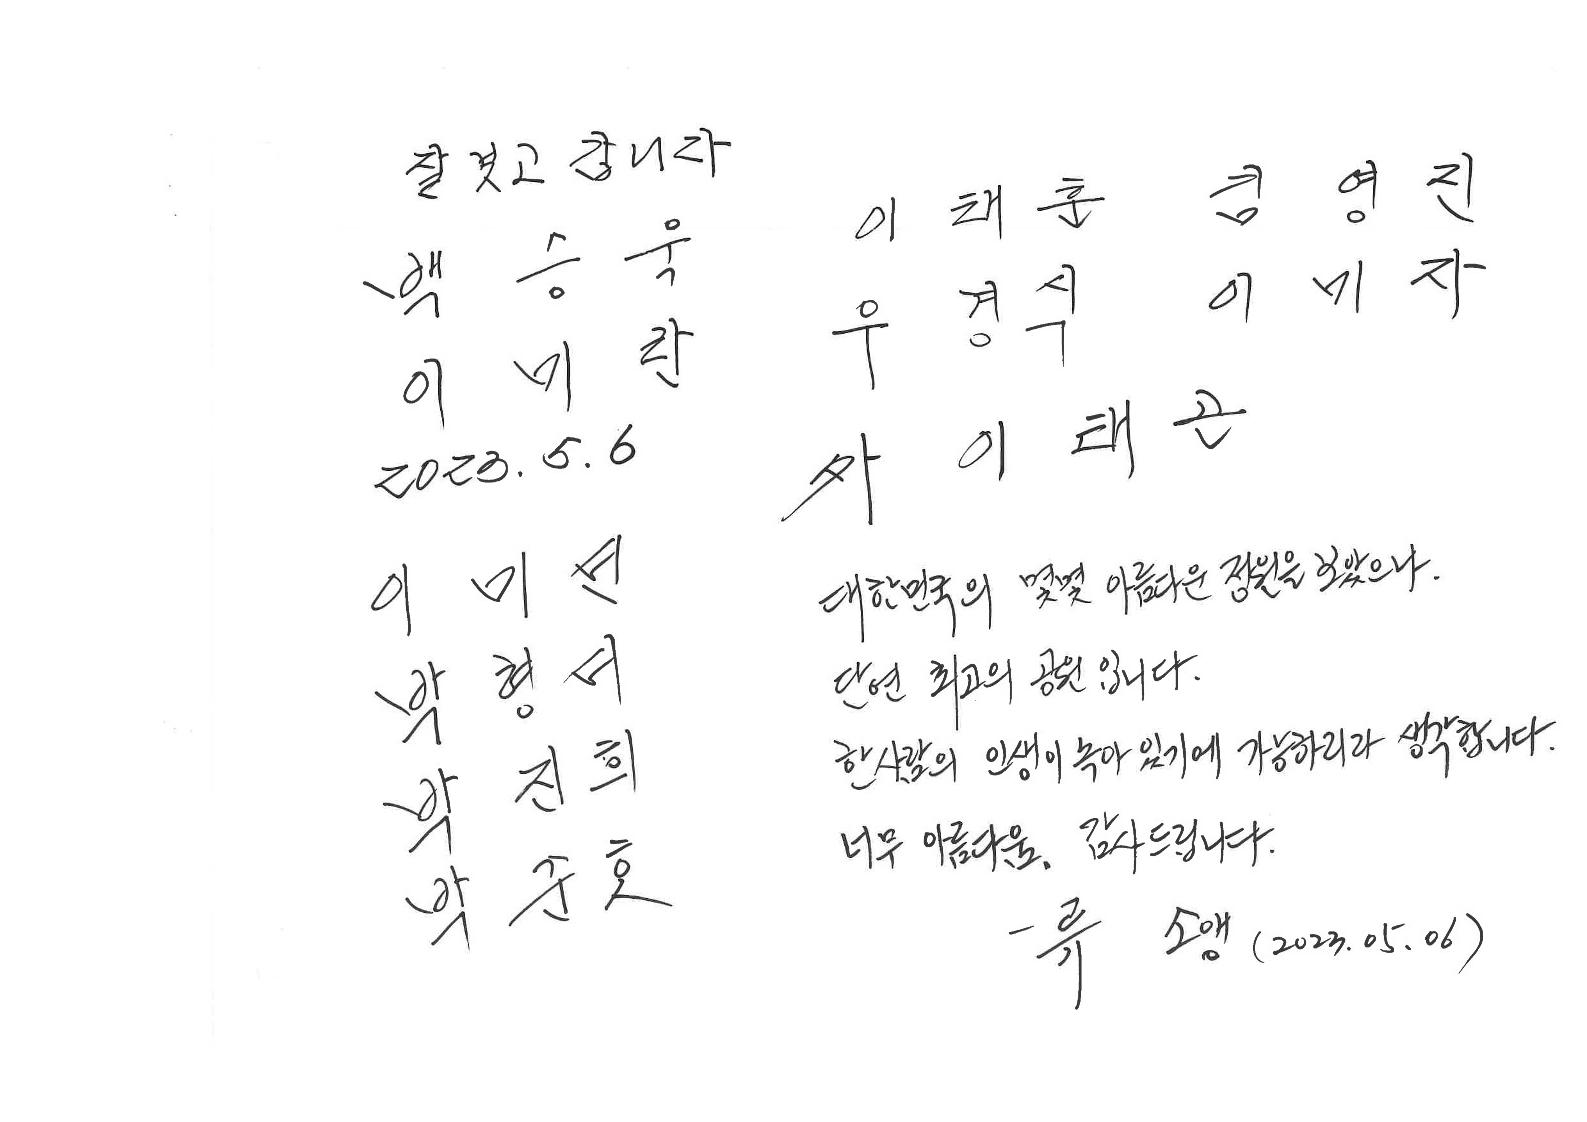 잘 겾고 갑니다
백 승 욱
이 미 란
2023. 5. 6
이 미 선
박 형 서
박 진 희
박 준 호
이 태 훈 김 영 진
우 경 식 이 미 자
이 태 근
대한민국의 몇몇 아름다운 정원을 보았으나.
단연 최고의 공원입니다.
한사람의 인생이 녹아 있기에 가능하리라 생각합니다.
너무 아름다움. 감사드립니다.
- 류 소앵 (2023.05.06)